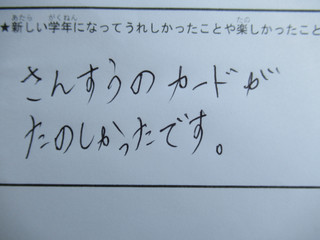 ★新しい学年になってうれしかったことや楽しかったこと
さんすうのカードが
たのしかったです。